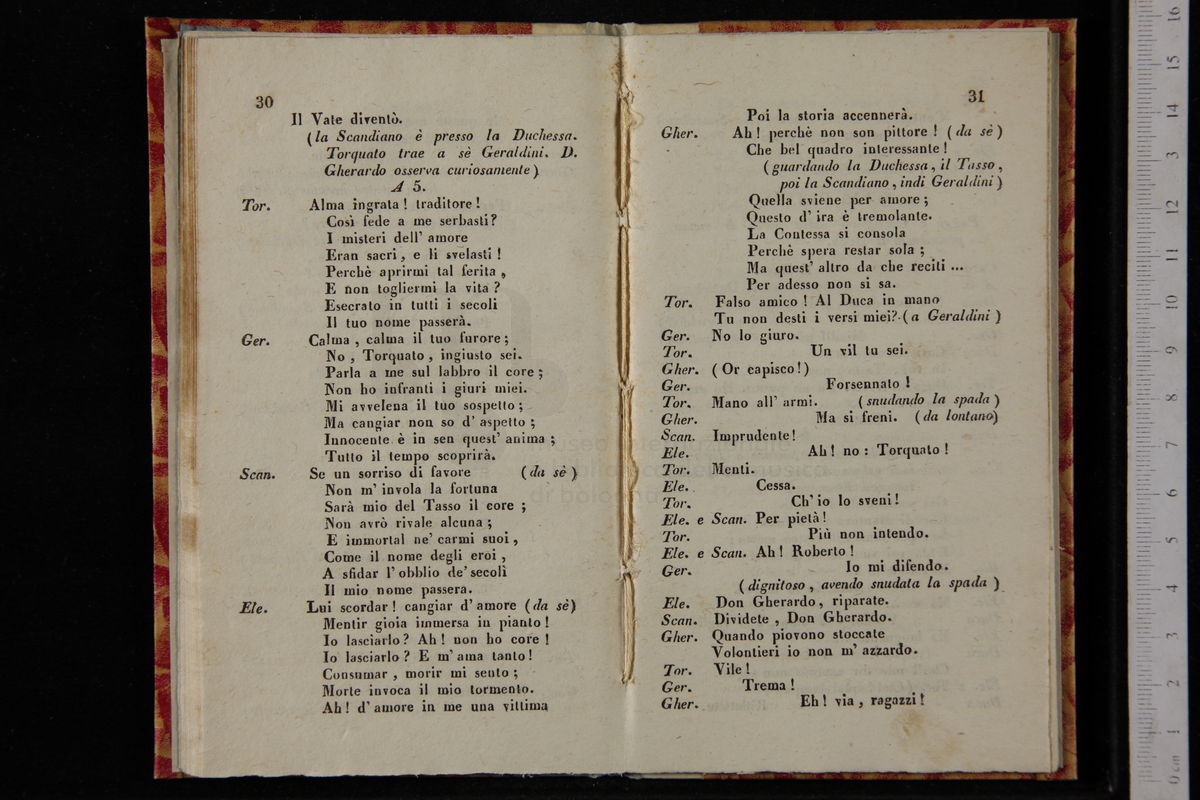 30
Il Vate diventò.
(la Scandiano è presso la Duchessa.
Torquato trae a sè Geraldini. D.
Gherardo osserva curiosamente)
A 5.
Tor. Alma ingrata! traditore!
Così fede a me serbasti?
I misteri dell' amore
Eran sacri, e li svelasti!
Perchè aprirmi tal ferita,
E non togliermi la vita?
Esecrato in tutti i secoli
Il tuo nome passerà.
Ger. Calma, calma il tuo furore;
No, Torquato, ingiusto sei.
Parla a me sul labbro il core;
Non ho infranti i giuri miei.
Mi avvelena il tuo sospetto;
Ma cangiar non so d' aspetto;
Innocente è in sen quest' anima;
Tutto il tempo scoprirà.
Scan. Se un sorriso di favore (da sè)
Non m' invola la fortuna
Sarà mio del Tasso il core;
Non avrò rivale alcuna;
E immortal ne' carmi suoi,
Come il nome degli eroi,
A sfidar l' obblio de' secoli
Il mio nome passera.
Ele. Lui scordar! cangiar d' amore (da sè)
Mentir gioia immersa in pianto!
Io lasciarlo? Ah! non ho core!
Io lasciarlo? E m' ama tanto!
Consumar, morir mi sento;
Morte invoca il mio tormento.
Ah! d' amore in me una vittima
31
Poi la storia accennerà.
Gher. Ah! perchè non son pittore! (da sè)
Che bel quadro interessante!
(guardando la Duchessa, il Tasso,
poi la Scandiano, indi Geraldini)
Quella sviene per amore;
Questo d' ira è tremolante.
La Contessa si consola
Perchè spera restar sola;
Ma quest' altro da che reciti ...
Per adesso non si sa.
Tor. Falso amico! Al Duca in mano
Tu non desti i versi miei? (a Geraldini)
Ger. No lo giuro.
Tor. Un vil tu sei.
Gher. (Or capisco!)
Ger. Forsennato!
Tor. Mano all' armi. (snudando la spada)
Gher. Ma si freni. (da lontano)
Scan. Imprudente!
Ele. Ah! no: Torquato!
Tor. Menti.
Ele. Cessa.
Tor. Ch' io lo sveni!
Ele. e Scan. Per pietà!
Tor. Più non intendo.
Ele. e Scan. Ah! Roberto!
Ger. Io mi difendo.
(dignitoso, avendo snudata la spada)
Ele. Don Gherardo, riparate.
Scan. Dividete, Don Gherardo.
Gher. Quando piovono stoccate
Volontieri io non m' azzardo.
Tor. Vile!
Ger. Trema!
Gher. Eh! via, ragazzi!